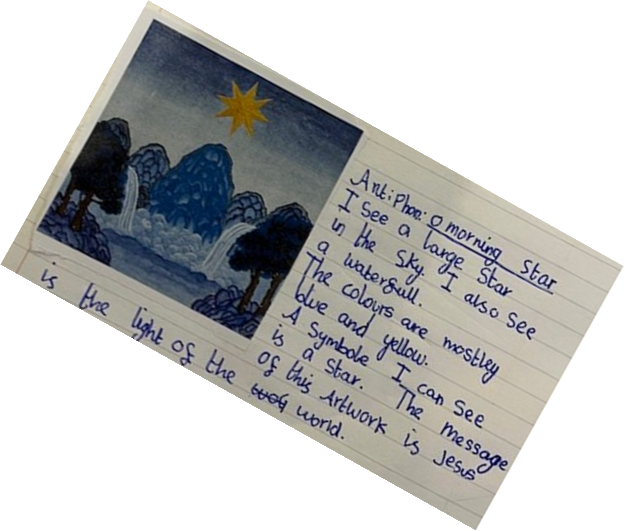 Antiphon: O morning Star
I See a large Star
in the Sky. I also See
a waterfull.
The colours are mostley
blue and yellow.
A Symbole I can See
is a Star. The message
of this Artwork is Jesus
is the light of the world.